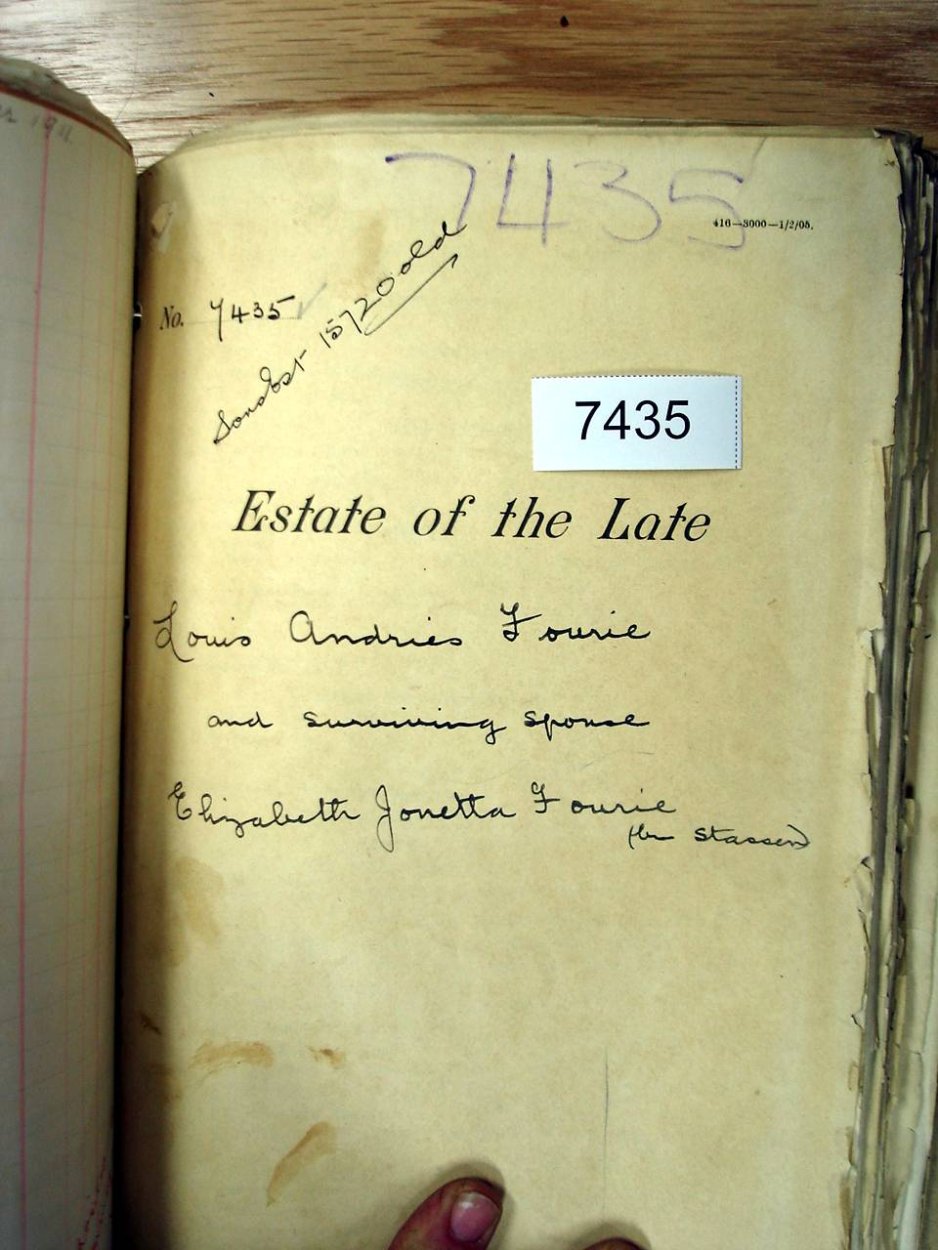 7435
416—3000—1/2/05.
No. 7435
15720 old
7435
Estate of the Late
Louis Andries Fourie
and surviving spouse
Elizabeth Jonetta Fourie
Stassen)